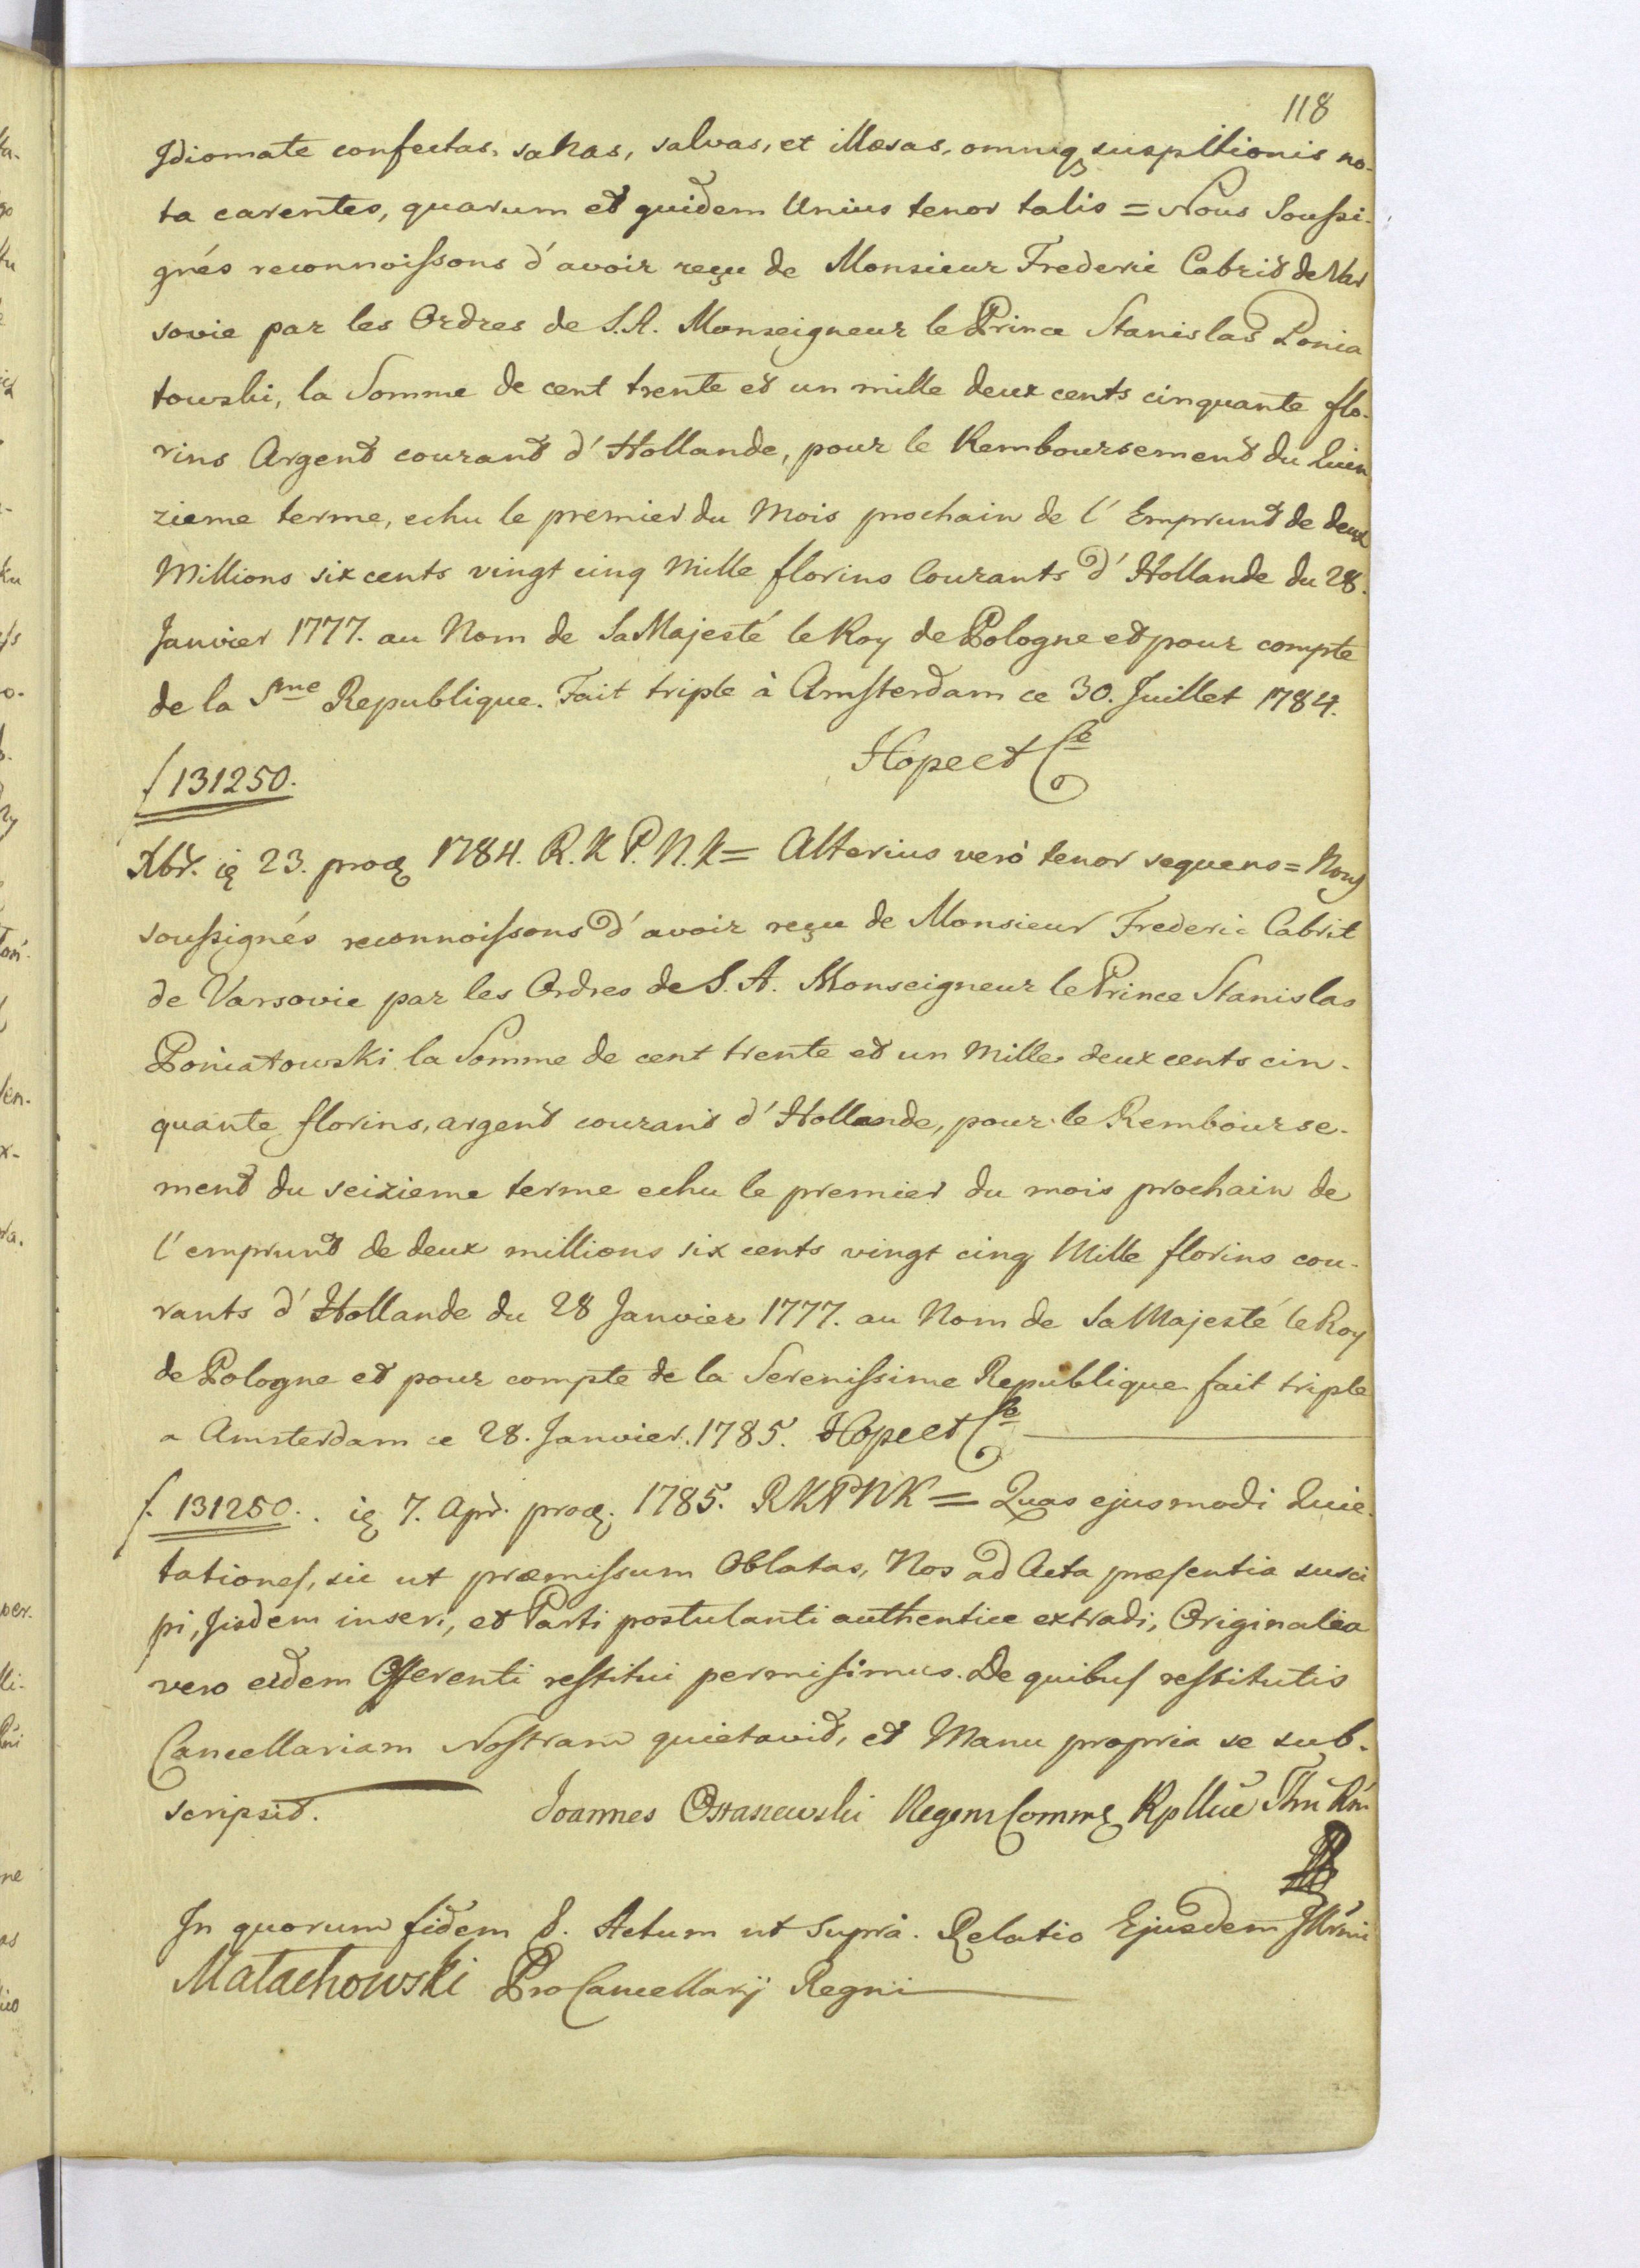 118
Idiomate confectas, sanas, salvas, et illæsas, omniq; suspitionis no-
ta carentes, quarum et quidem Unius tenor talis = Nous Soussi-
gnés reconnoissons d'avoir reçu de Monsieur Frederic Cabrit de Var
sovie par les Ordres de S.A. Monseigneur le Prince Stanislas Ponia
towski, la Somme de cent trente et un mille deux cents cinquante flo-
rins Argent courant d'Hollande, pour le Remboursement du Quin
zieme terme, echu le premier du Mois prochain de l'Emprunt de deux
Millions six cents vingt cinq Mille florins Courants d'Hollande du 28.
Janvier 1777. au Nom de Sa Majesté le Roy de Pologne et pour compte
de la Sme Republique. Fait triple à Amsterdam ce 30. Juillet 1784.
Hope et Ce
f 131250.
Xbr. 23. 1784. R.K.P.N.K = Alterius verò tenor sequens = Nous
soussignés reconnoissons d'avoir reçu de Monsieur Frederic Cabrit
de Varsovie par les Ordres de S. A. Monseigneur le Prince Stanislas
Poniatowski la Somme de cent trente et un Mille deux cents cin-
quante florins, argent courant d'Hollande, pour le Rembourse-
ment du seizieme terme echu le premier du mois prochain de
l'emprunt de deux millions six cents vingt cinq Mille florins cou-
rants d'Hollande du 28 Janvier 1777. au Nom de Sa Majesté le Roy
de Pologne et pour compte de la Serenissime Republique fait triple
a Amsterdam ce 28. Janvier. 1785. Hope et Ce
f. 131250. 7. Apr. 1785. RKPNK = Quas ejusmodi Quie-
tationes, sic ut præmissum Oblatas, Nos ad Acta præsentia susci
pi, Iisdem inseri, et Parti postulanti authentice extradi, Originalia
vero eidem Offerenti restitui permisimus. De quibus restitutis
Cancellariam Nostram quietavit, et Manu propria se sub-
scripsit. Joannes Ostaszewski Regens
In quorum fidem &. Actum ut supra. Relatio Ejusdem
Małachowski ProCancellarij Regni